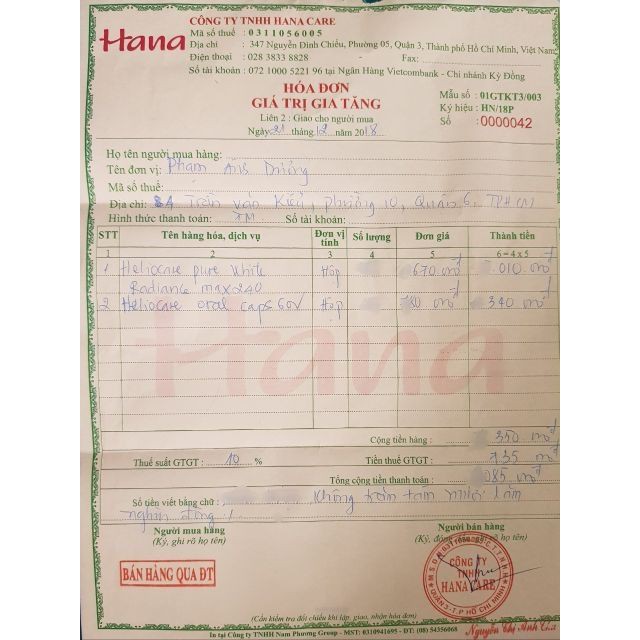 Hana
CÔNG TY TNHH HANA CARE
Mã số thuế : 0311056005
Địa chỉ : 347 Nguyễn Đình Chiểu, Phường 05, Quận 3, Thành phố Hồ Chí Minh, Việt Nam
Điện thoại : 028 3833 8828 - Fax:
Số tài khoản : 072 1000 5221 96 tại Ngân Hàng Vietcombank - Chi nhánh Kỳ Đồng
HÓA ĐƠN
GIÁ TRỊ GIA TĂNG
Liên 2 : Giao cho người mua
Ngày 21 tháng 12 năm 2018
Mẫu số : 01GTKT3/003
Ký hiệu : HN/18P
Số : 0000042
Họ tên người mua hàng:
Tên đơn vị: Phạm Ánh Dương
Mã số thuế:
Địa chỉ: Trần Văn Kiểu, Phường 10, Quận 6, TPHCM
Hình thức thanh toán: TM Số tài khoản:
STT Tên hàng hóa, dịch vụ Đơn vị tính Số lượng Đơn giá Thành tiền
1 2 3 4 5 6 = 4 x 5
1 Heliocare pure white Hộp 670 010
Radiance max 240
2 Heliocare oral caps 60V Hộp 340
Hana
Cộng tiền hàng : 350
Thuế suất GTGT : 10 % Tiền thuế GTGT : 735
Tổng cộng tiền thanh toán : 085
Số tiền viết bằng chữ : không trăm tám mươi lăm
nghìn đồng
Người mua hàng
(Ký, ghi rõ họ tên)
Người bán hàng
(Ký, đóng dấu, ghi rõ họ tên)
BÁN HÀNG QUA ĐT
CÔNG TY
TNHH
HANA CARE
QUẬN 3 - T.P HỒ CHÍ MINH
(Cần kiểm tra đối chiếu khi lập, giao, nhận hóa đơn)
In tại Công ty TNHH Nam Phương Group - MST: 0310941695 - ĐT: (08) 54356068